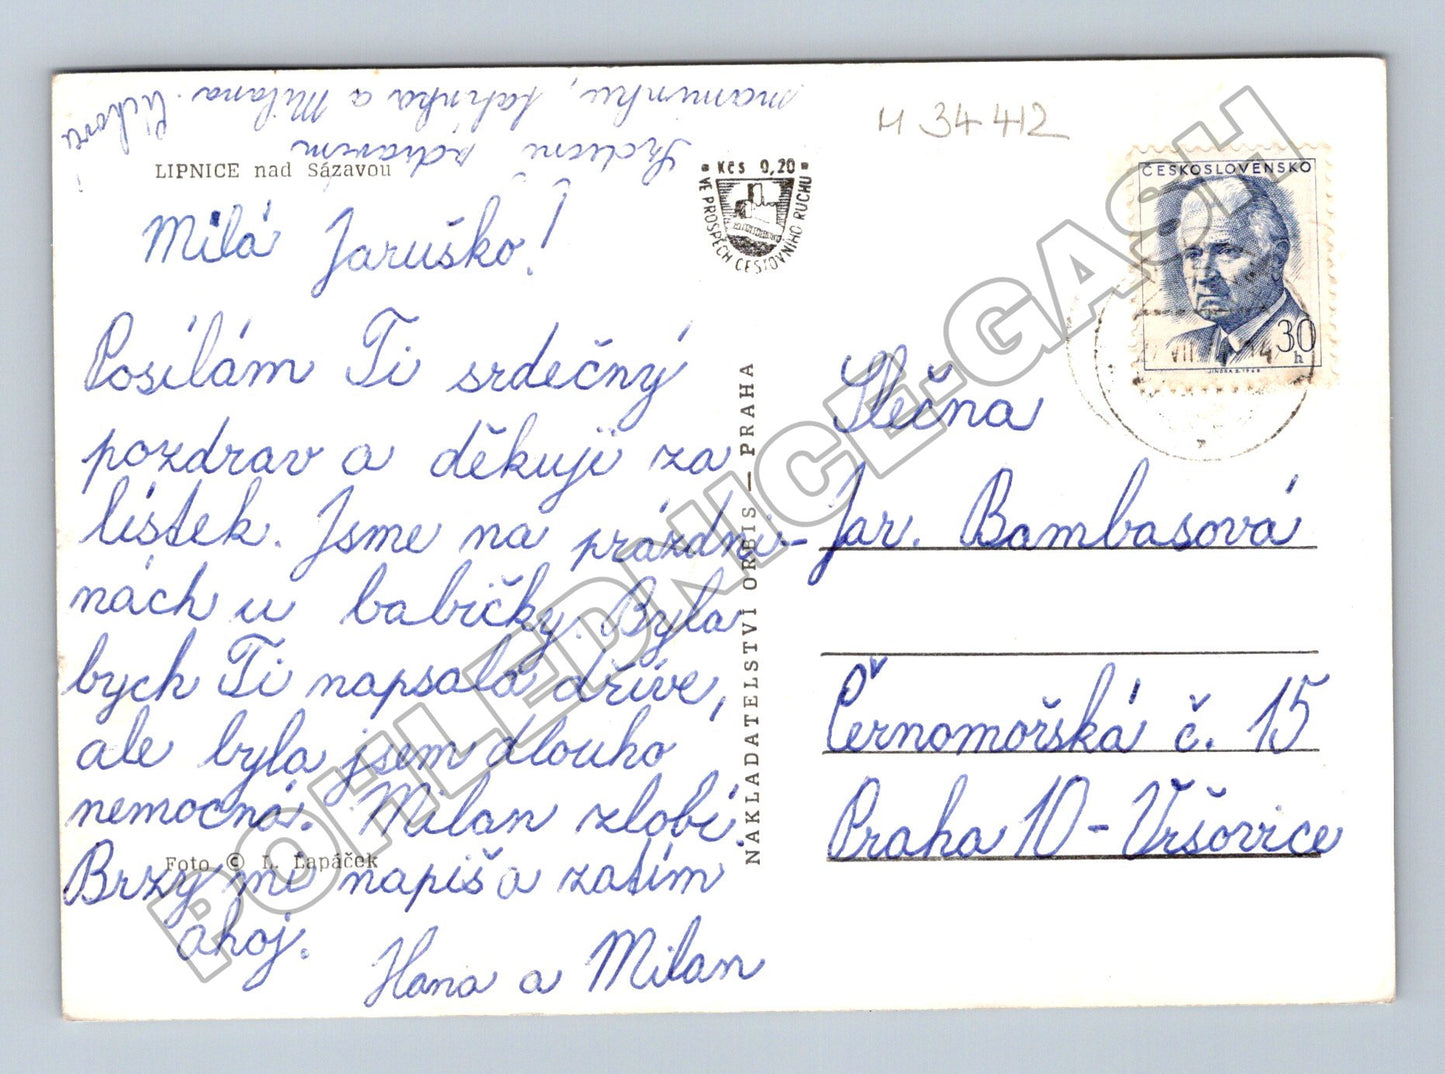 Srdečně zdravím
maminku, tatínka a Milana.
M 34 412
LIPNICE nad Sázavou
Kčs 0,20
VE PROSPĚCH CESTOVNÍHO RUCHU
ČESKOSLOVENSKO
30 h
Milá Jaruško!
Posílám Ti srdečný
pozdrav a děkuji za
lístek. Jsme na prázdni-
nách u babičky. Byla
bych Ti napsala dříve,
ale byla jsem dlouho
nemocná. Milan zlobí.
Foto © L. Lapáček
Brzy mi napiš a zatím
ahoj.
Hana a Milan
NAKLADATELSTVÍ ORBIS — PRAHA
Slečna
Jar. Bambasová
Černomořská č. 15
Praha 10 - Vršovice
POHLEDNICE-GASH